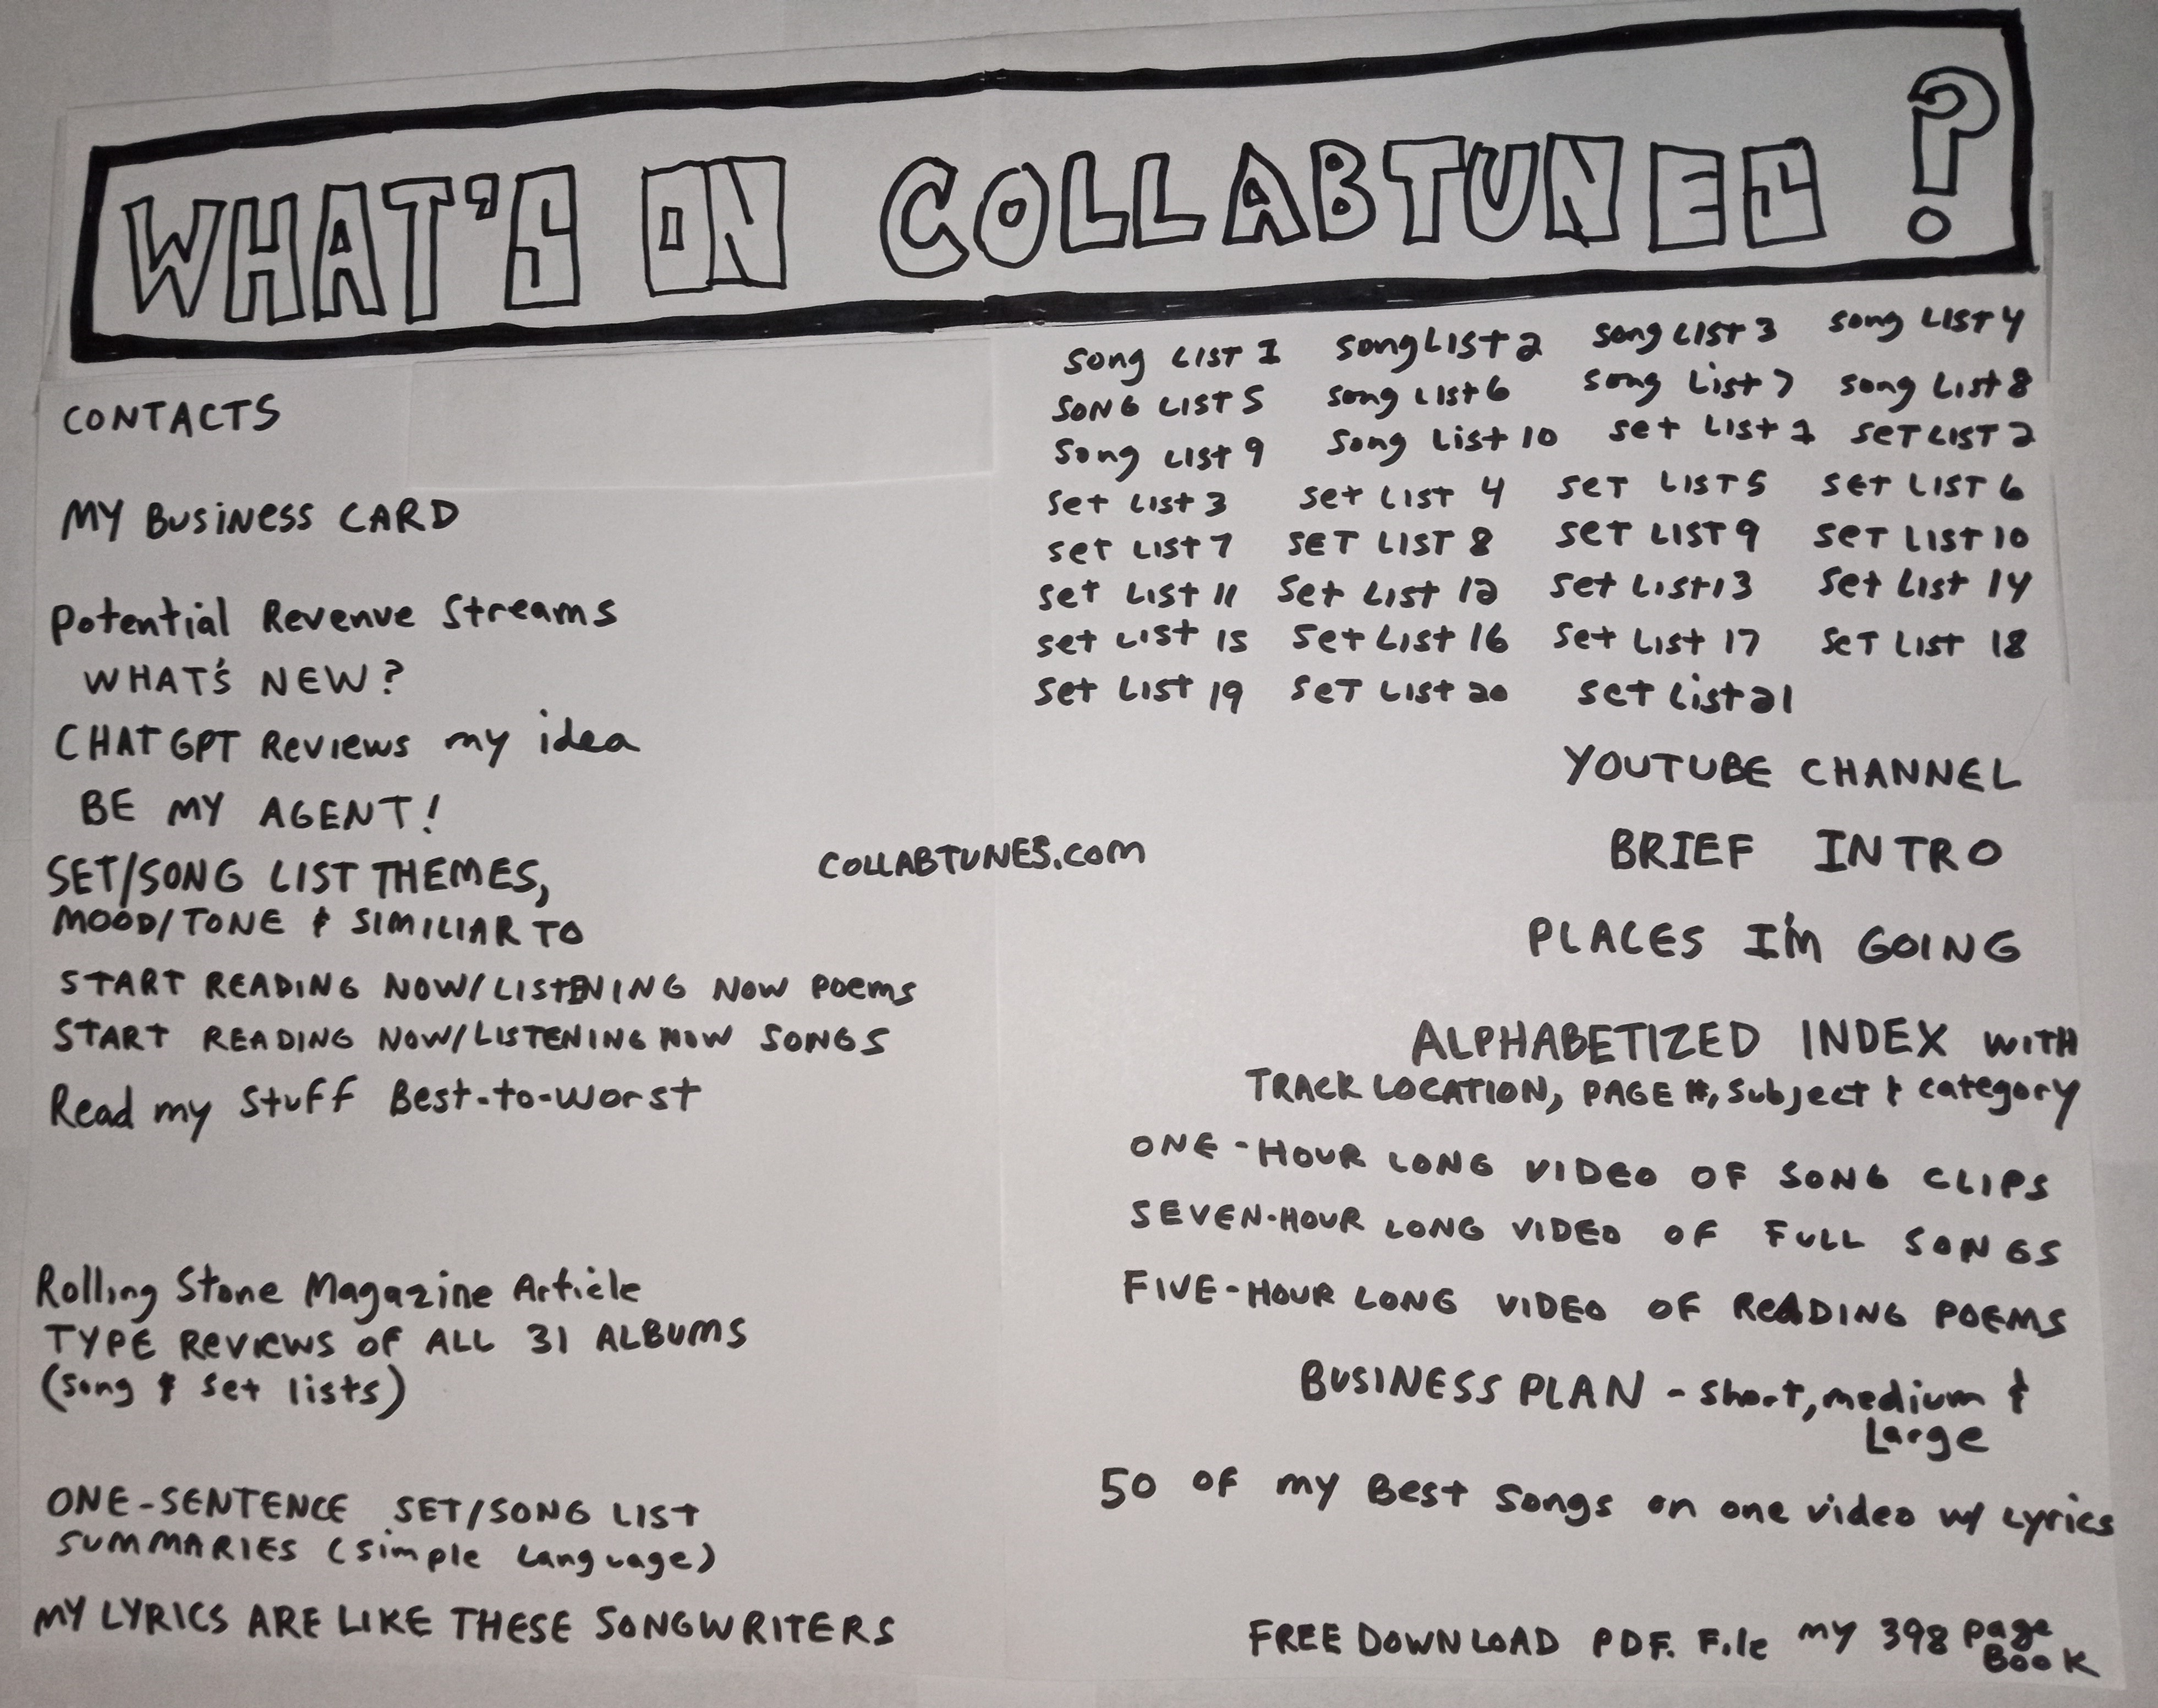 WHAT'S ON COLLABTUNES?
CONTACTS
MY BUSINESS CARD
Potential Revenue Streams
WHAT'S NEW?
CHAT GPT Reviews my idea
BE MY AGENT!
SET/SONG LIST THEMES,
MOOD/TONE & SIMILIAR TO
START READING NOW/LISTENING NOW Poems
START READING NOW/LISTENING NOW SONGS
Read my Stuff Best-to-Worst
Rolling Stone Magazine Article
TYPE Reviews of ALL 31 ALBUMS
(Song & Set lists)
ONE-SENTENCE SET/SONG LIST
SUMMARIES (simple Language)
MY LYRICS ARE LIKE THESE SONGWRITERS
COLLABTUNES.com
Song LIST 1 Song LIST 2 Song LIST 3 Song LIST 4
SONG LIST 5 Song LIST 6 Song List 7 Song List 8
Song LIST 9 Song List 10 Set List 1 SET LIST 2
Set List 3 Set LIST 4 SET LIST 5 SET LIST 6
Set LIST 7 SET LIST 8 SET LIST 9 SET LIST 10
Set LIST 11 Set LIST 12 Set List 13 Set List 14
Set LIST 15 Set LIST 16 Set List 17 SET LIST 18
Set LIST 19 SET LIST 20 Set List 21
YOUTUBE CHANNEL
BRIEF INTRO
PLACES I'M GOING
ALPHABETIZED INDEX WITH
TRACK LOCATION, PAGE #, Subject & category
ONE-HOUR LONG VIDEO OF SONG CLIPS
SEVEN-HOUR LONG VIDEO OF FULL SONGS
FIVE-HOUR LONG VIDEO OF READING POEMS
BUSINESS PLAN - Short, medium &
Large
50 of my Best Songs on one video w/ Lyrics
FREE DOWNLOAD PDF. File my 398 page
BOOK